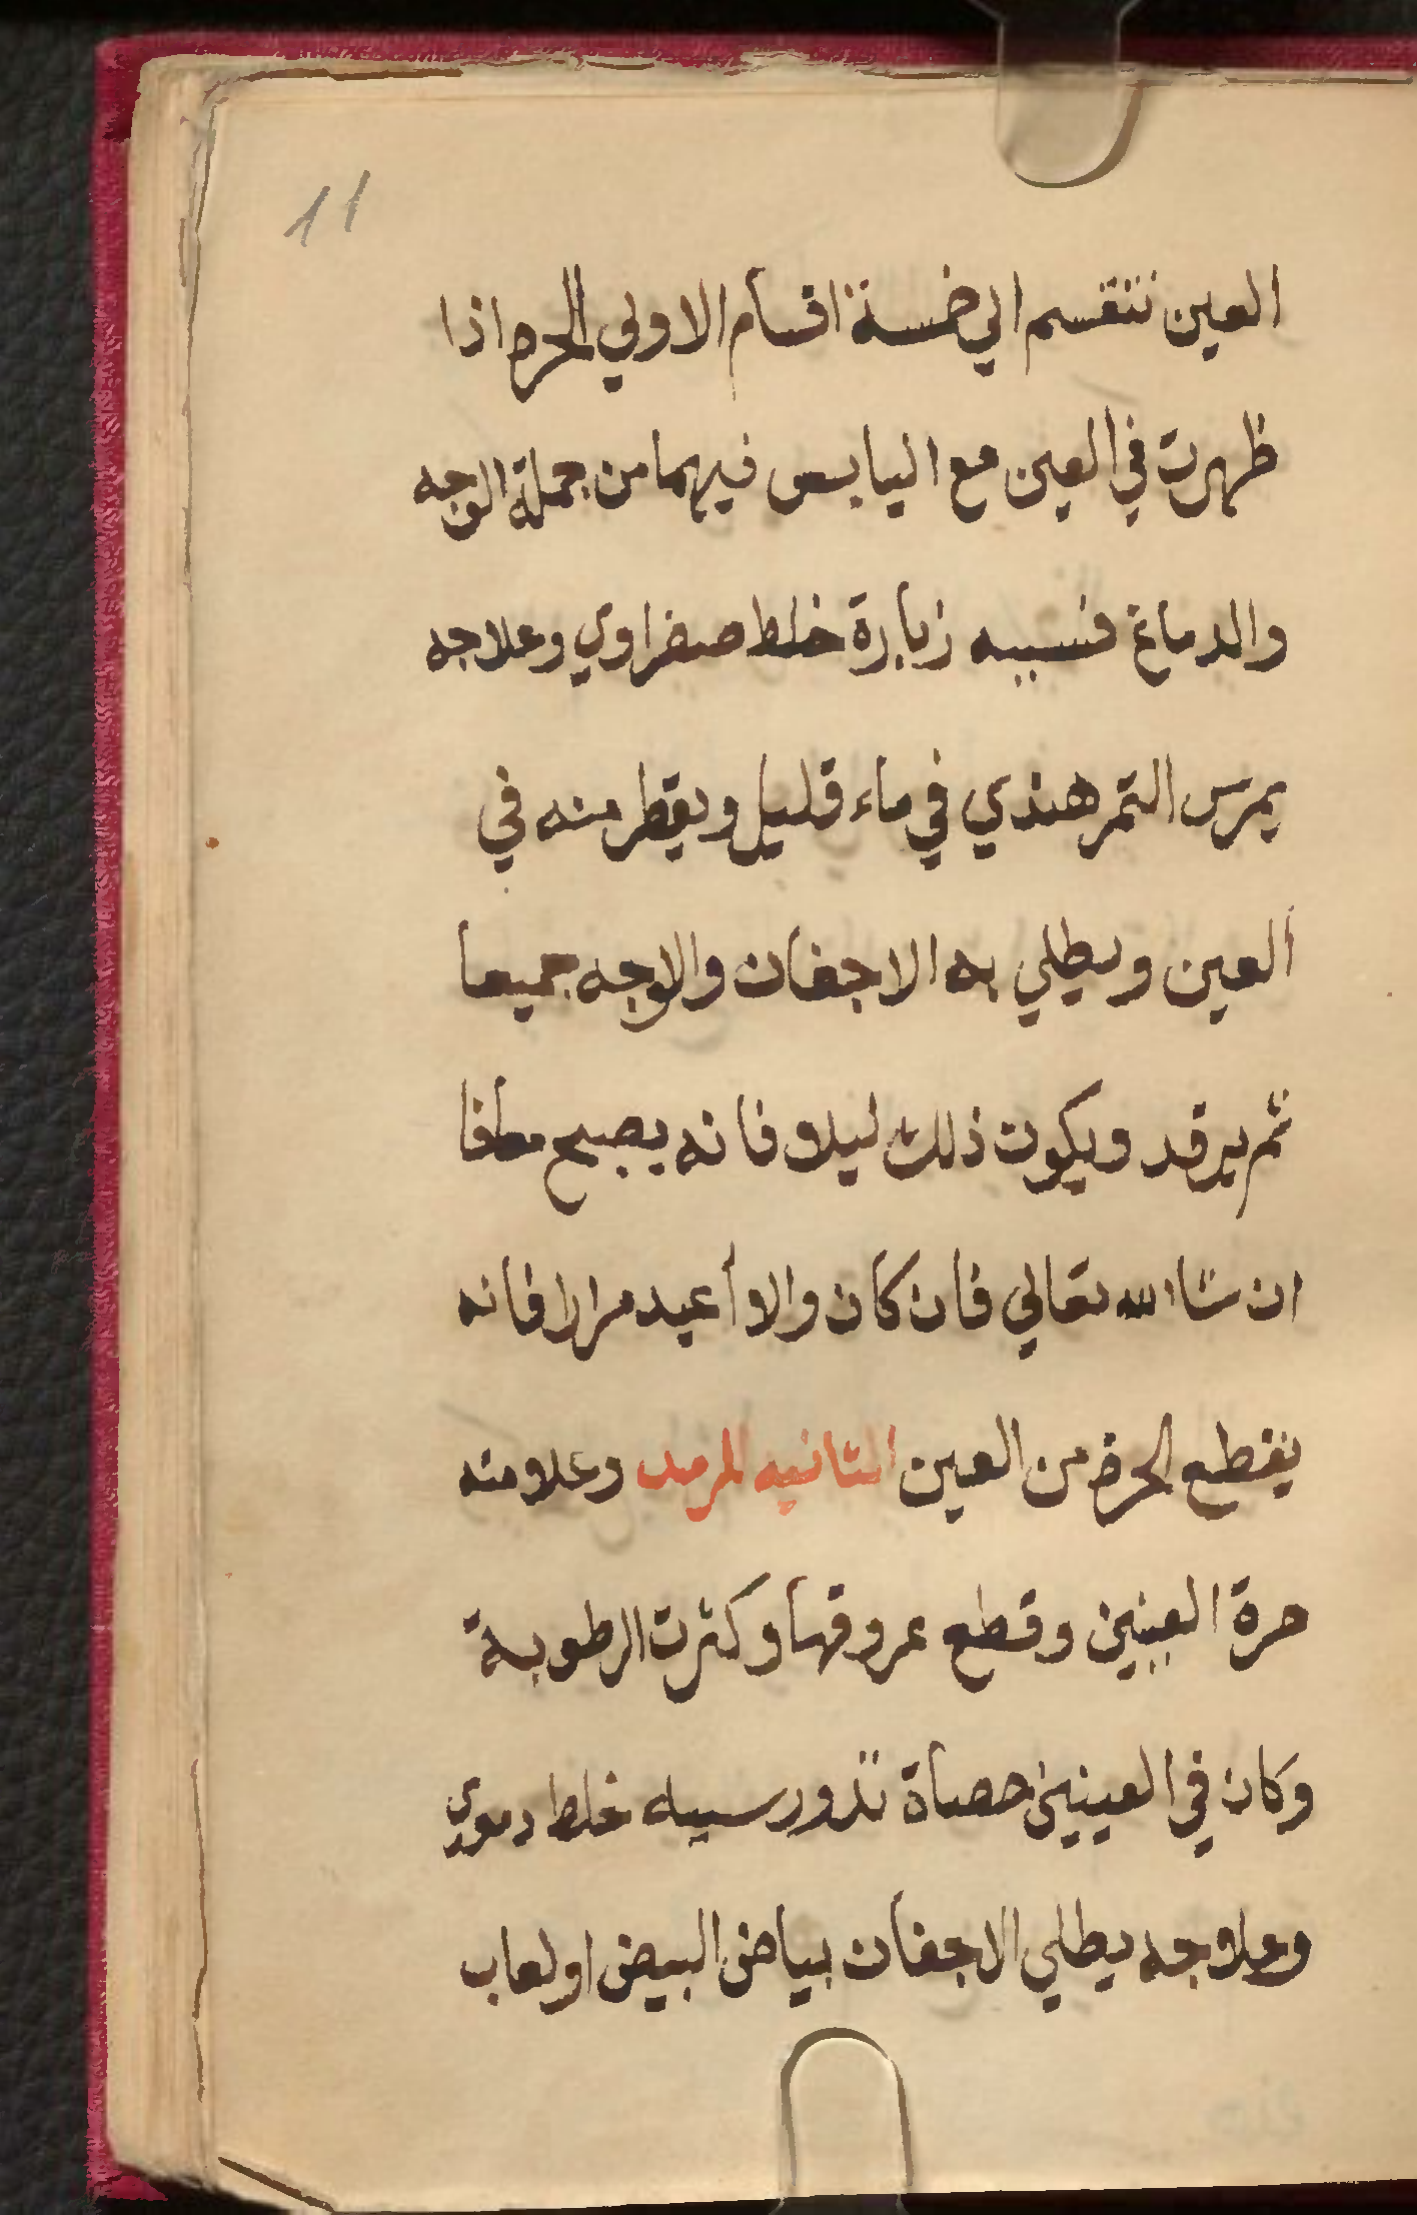 11
العين تنقسم الي خمسة اقسام الاولي الحره اذا
ظهرت في العين مع اليابس فيهما من جملة الوجه
والدماغ فسببه زيادة خلط صفراوي وعلاجه
يمرس التمر هندي في ماء قليل ويقطر منه في
العين ويطلي به الاجفان والوجه جميعا
ثم يرقد ويكون ذلك ليلا فانه يصبح معافا
ان شاالله تعالي فان كان والا أعيد مرارا فانه
يقطع الحره من العين الثانيه الرمد وعلامته
حرة العينين وقطع عروقها وكثرت الرطوبة
وكان في العينين حصاة تدور سببه خلط دموي
وعلاجه يطلي الاجفان ببياض البيض او لعاب